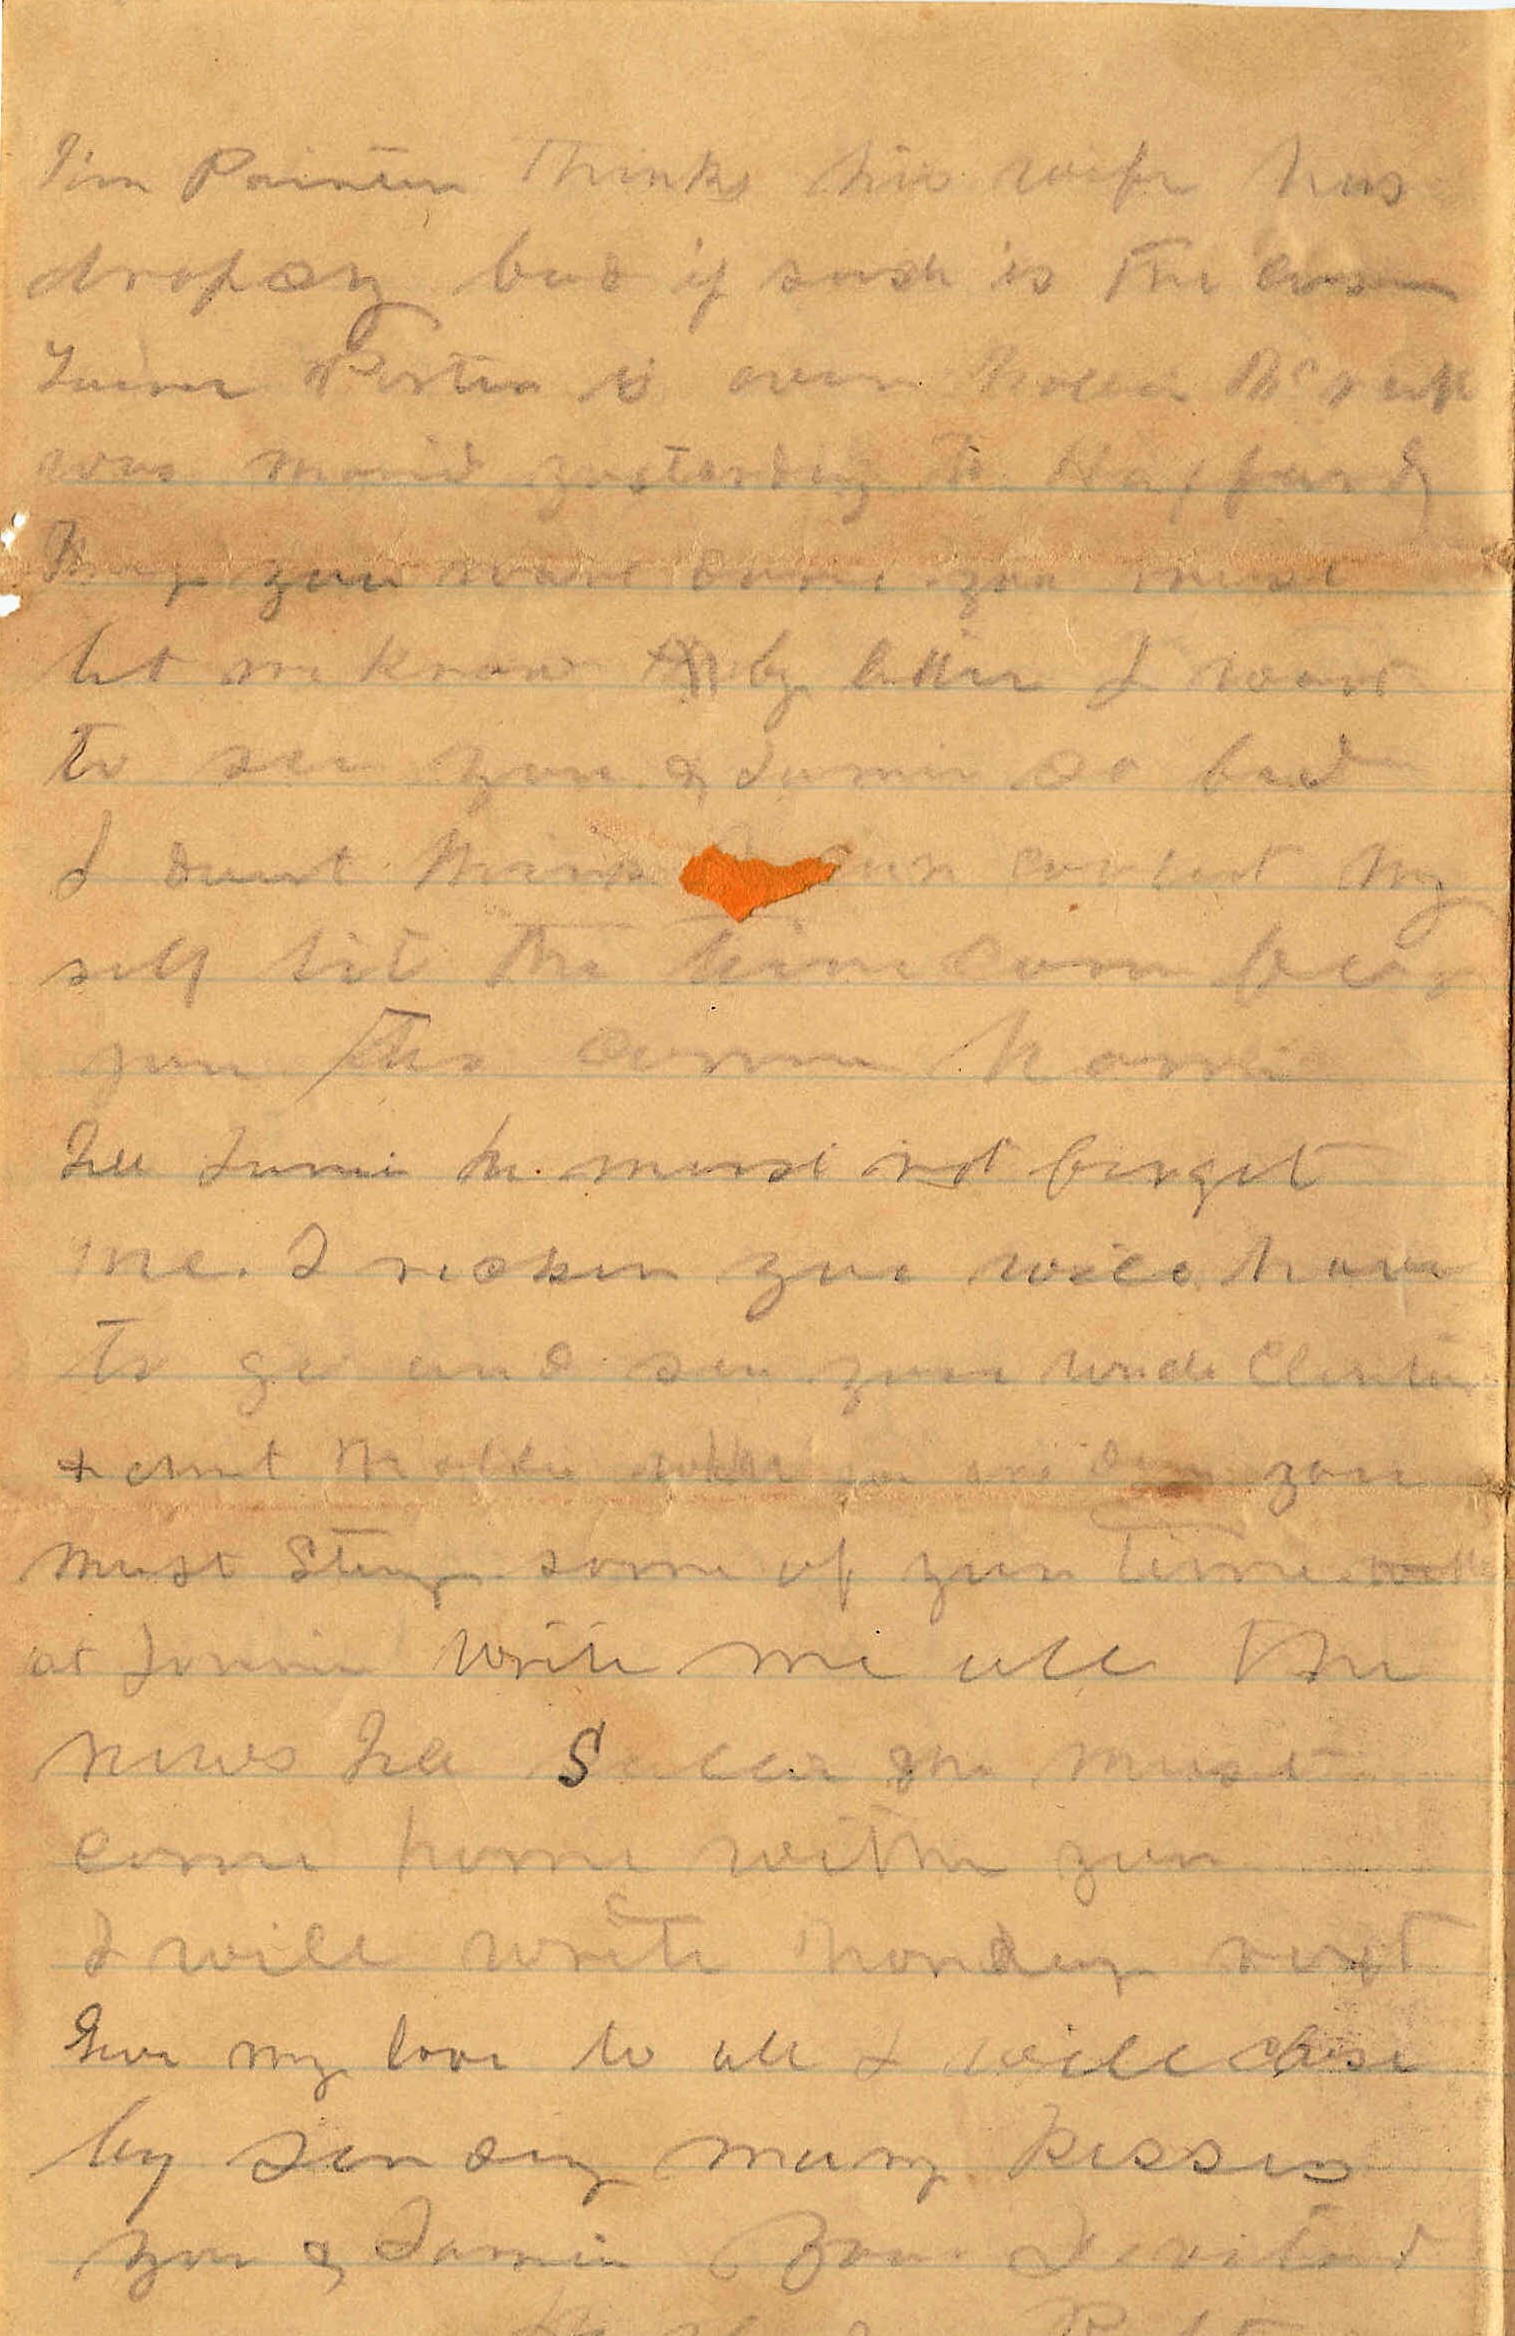 Jim Painter Thinks his wife has
dropsy but if such is the case
is over
was marid yesterday to
you want come you must
let me know by letter I want
to see you & Jamie so bad
I dunt think can content my
self tit the time com for
you to come home
Tell Jamie he must not forget
me. I reckon you will have
to go and see your uncle
& aunt Mollie you
must Stay some of your time
at write me all the
news Tell Sallie she must
come home with you
I will write Monday next
Give my love to all I will close
by sending many kisses
you & Jamie Your Devoted